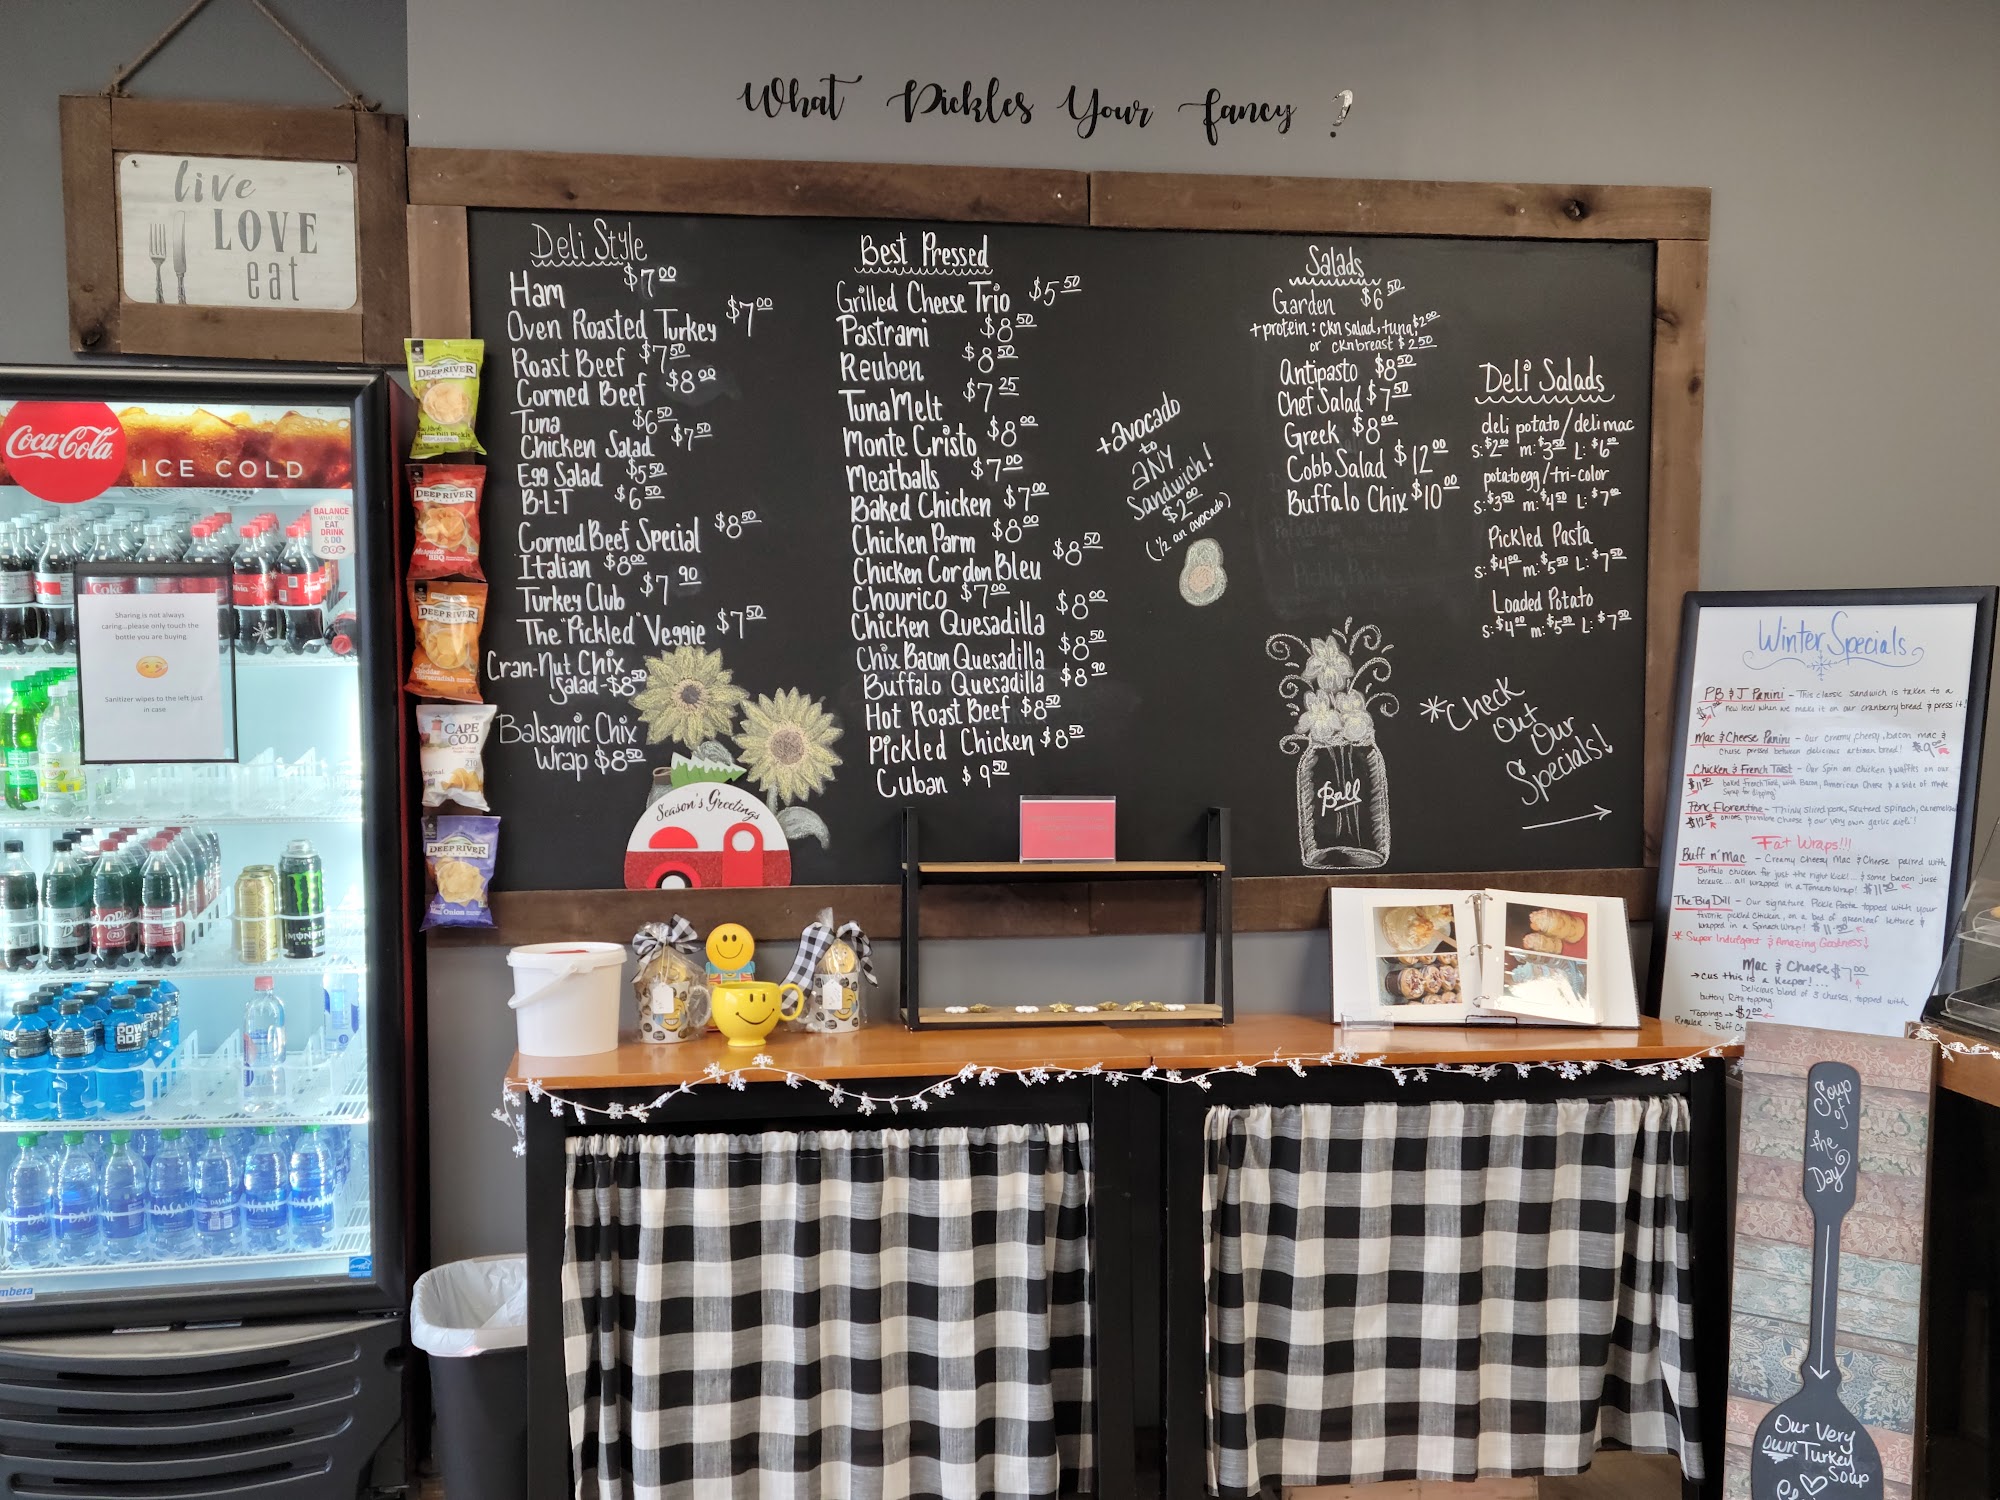 What Pickles Your Fancy ?
live
LOVE
eat
Deli Style
Ham $7.00
Oven Roasted Turkey $7.00
Roast Beef $7.50
Corned Beef $8.00
Tuna $6.50
Chicken Salad $7.50
Egg Salad $5.50
B.L.T $6.50
Corned Beef Special $8.50
Italian $8.00
Turkey Club $7.90
The "Pickled" Veggie $7.50
Cran-Nut Chix
Salad-$8.50
Balsamic Chix
Wrap $8.50
Best Pressed
Grilled Cheese Trio $5.50
Pastrami $8.50
Reuben $8.50
Tuna Melt $7.25
Monte Cristo $8.00
Meatballs $7.00
Baked Chicken $7.00
Chicken Parm $8.00
Chicken Cordon Bleu $8.50
Chourico $7.00
Chicken Quesadilla $8.00
Chix Bacon Quesadilla $8.50
Buffalo Quesadilla $8.90
Hot Roast Beef $8.50
Pickled Chicken $8.50
Cuban $9.50
+avocado
to
ANY
Sandwich!
$2.00
(1/2 an avocado)
Salads
Garden $6.50
+protein: ckn salad, tuna $2.00
or cknbreast $2.50
Antipasto $8.50
Chef Salad $7.50
Greek $8.00
Cobb Salad $12.00
Buffalo Chix $10.00
Deli Salads
deli potato/deli mac
s: $2.00 m: $3.50 L: $6.00
potato egg/tri-color
s: $3.50 m: $4.50 L: $7.00
Pickled Pasta
s: $4.00 m: $5.50 L: $7.50
Loaded Potato
s: $4.00 m: $5.50 L: $7.50
*Check
Out
Our
Specials!
Ball
Season's Greetings
Coca-Cola
ICE COLD
BALANCE
WHAT YOU
EAT,
DRINK
& DO
Sharing is not always
caring...please only touch the
bottle you are buying.
Sanitizer wipes to the left just
in case
DEEP RIVER
DEEP RIVER
Mesquite
BBQ
DEEP RIVER
Cheddar
Horseradish
CAPE
COD
Original
DEEP RIVER
Onion
MONSTER
POWER
ADE
DASANI
Winter Specials
PB & J Panini - This classic sandwich is taken to a
new level when we make it on our cranberry bread & press it!
Mac & Cheese Panini - Our creamy, cheesy, bacon mac &
cheese pressed between delicious artisan bread!
Chicken & French Toast - Our spin on chicken & waffles on our
baked french toast, with Bacon, American cheese & a side of maple
syrup for dipping
Pork Florentine - Thinly sliced pork, sauteed spinach, caramelized
$12.00 onions, provolone cheese & our very own garlic aioli!
Fat Wraps!!!
Buff n' Mac - Creamy Cheesy Mac & Cheese paired with
Buffalo chicken for just the right kick!... & some bacon just
because... all wrapped in a Tomato Wrap! $11.50
The Big Dill - Our signature Pickle Pasta topped with your
favorite pickled chicken, on a bed of greenleaf lettuce &
wrapped in a Spinach Wrap! $11.50
* Super Indulgent & Amazing Goodness!
Mac & Cheese $7.00
→ cus this is a Keeper!...
Delicious blend of 3 cheeses, topped with
buttery Ritz topping
Toppings → $2.00
Regular - Buff
Soup
of
the
Day
Our Very
own Turkey
Soup